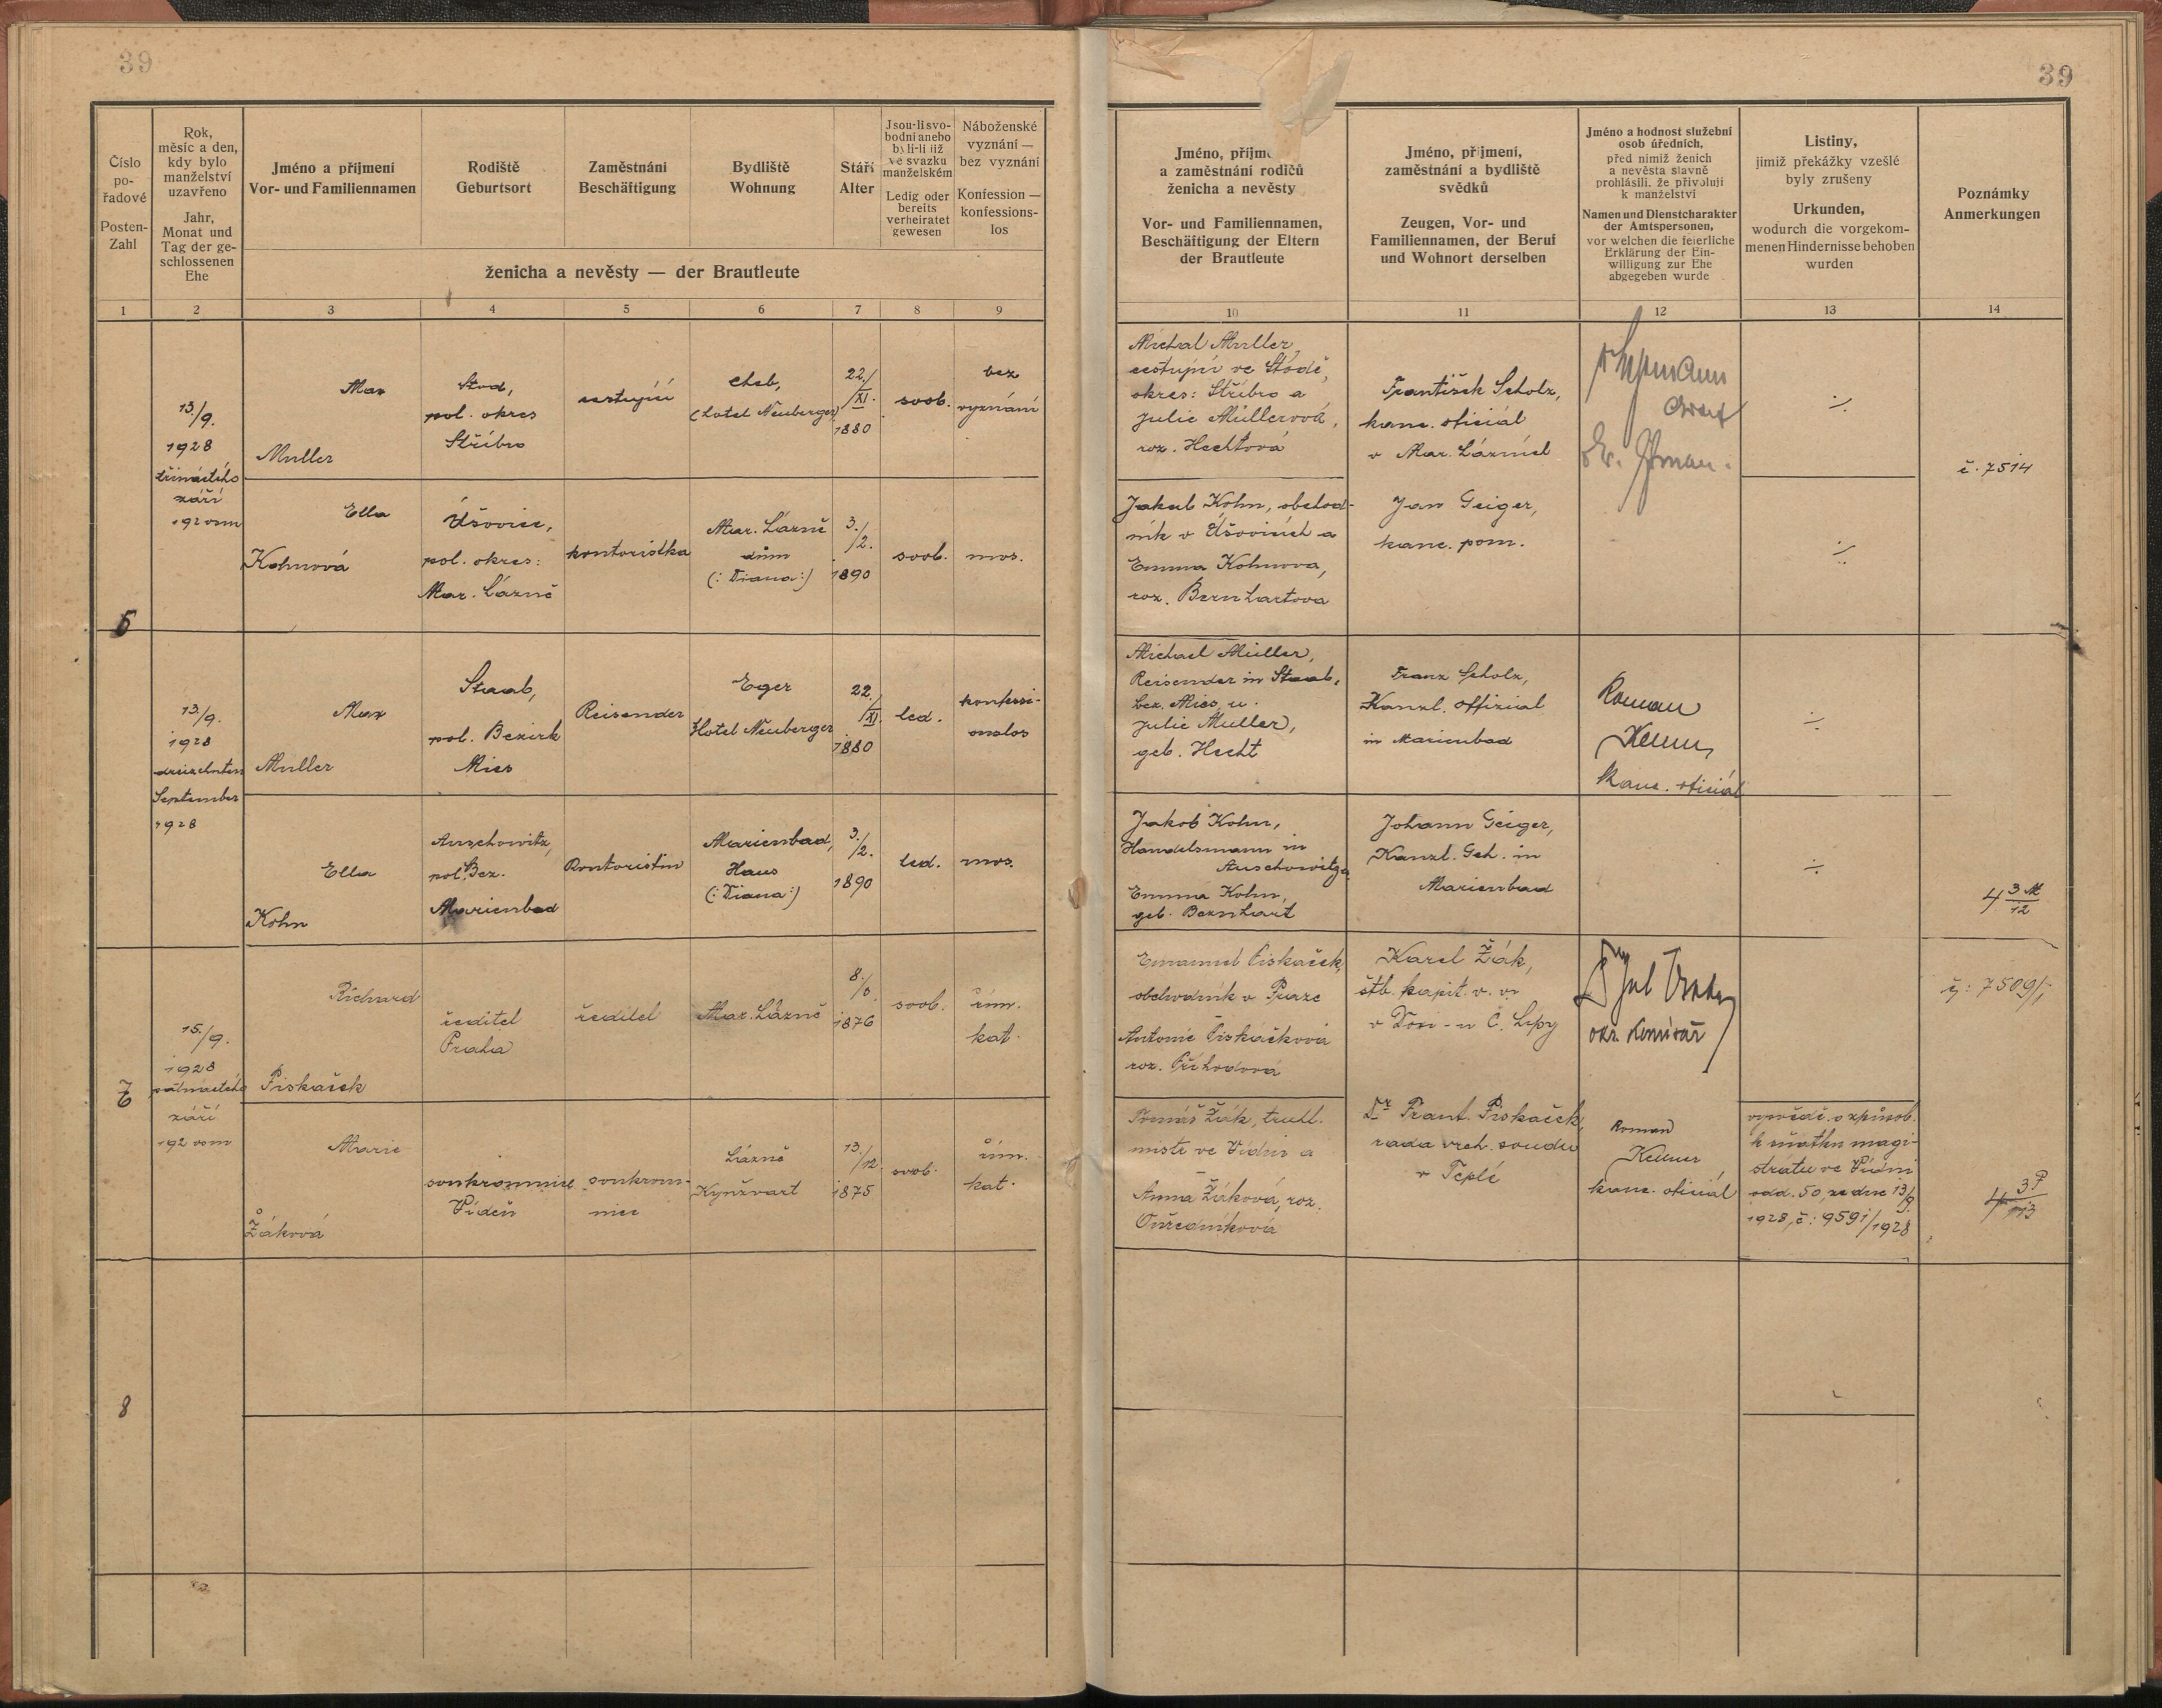 39
39
Číslo
po-
řadové
Posten-
Zahl
Rok,
měsíc a den,
kdy bylo
manželství
uzavřeno
Jahr,
Monat und
Tag der ge-
schlossenen
Ehe
Jméno a příjmení
Vor- und Familiennamen
Rodiště
Geburtsort
Zaměstnání
Beschäftigung
Bydliště
Wohnung
Stáří
Alter
Jsou-li svo-
bodni anebo
byli-li již
ve svazku
manželském
Ledig oder
bereits
verheiratet
gewesen
Náboženské
vyznání —
bez vyznání
Konfession —
konfessions-
los
ženicha a nevěsty — der Brautleute
Jméno, příjme
a zaměstnání rodičů
ženicha a nevěsty
Vor- und Familiennamen,
Beschäftigung der Eltern
der Brautleute
Jméno, příjmení,
zaměstnání a bydliště
svědků
Zeugen, Vor- und
Familiennamen, der Beruf
und Wohnort derselben
Jméno a hodnost služební
osob úředních,
před nimiž ženich
a nevěsta slavně
prohlásili, že přivolují
k manželství
Namen und Dienstcharakter
der Amtspersonen,
vor welchen die feierliche
Erklärung der Ein-
willigung zur Ehe
abgegeben wurde
Listiny,
jimiž překážky vzešlé
byly zrušeny
Urkunden,
wodurch die vorgekom-
menen Hindernisse behoben
wurden
Poznámky
Anmerkungen
1 2 3 4 5 6 7 8 9 10 11 12 13 14
6
13./9.
1928
třináctého
září
192 osm
Max
Muller
Stod,
pol. okres
Stříbro
cestující
Cheb,
(hotel Neuberger)
22./
XI.
1880
svob.
bez
vyznání
Michal Muller
cestující ve Stodě,
okres: Stříbro a
Julie Müllerová,
roz. Hechtová
František Scholz,
kanc. oficiál
v Mar. Lázních
÷
č. 7514
Ella
Kohnová
Úšovice,
pol. okres:
Mar. Lázně
kontoristka
Mar. Lázně
dům
(: Diana :)
3./
2.
1890
svob.
mos.
Jakub Kohn, obchod-
ník v Úšovicích a
Emma Kohnova,
roz. Bernhartova
Jan Geiger,
kanc. pom.
÷
13./9.
1928
dreizehnten
September
1928
Max
Müller
Staab,
pol. Bezirk
Mies
Reisender
Eger
Hotel Neuberger
22./
XI.
1880
led.
konfessi-
onslos
Michael Müller,
Reisender in Staab,
bez. Mies u.
Julie Muller,
geb. Hecht
Franz Scholz,
Kanzl. Offizial
in Marienbad
Roman
kanc. oficiál
÷
Ella
Kohn
Auschowitz,
pol. Bez.
Marienbad
Kontoristin
Marienbad,
Haus
(: Diana :)
3./
2.
1890
led.
mos.
Jakob Kohn,
Handelsmann in
Auschowitz
Emma Kohn,
geb. Bernhart
Johann Geiger,
Kanzl. Geh. in
Marienbad
÷
4 3 M
12
7
15./9.
1928
patnáctého
září
192 osm
Richard
Piskaček
ředitel
Praha
ředitel
Mar. Lázně
8./
1876
svob.
řím.
kat.
Emanuel Piskaček,
obchodník v Praze
Antonie Piskáčková
roz. Příhodová
Karel Žák,
štb. kapit. v. v.
v Č. Lípy
okr. komisař
č: 7509/
Marie
Žáková
soukromnice
Vídeň
soukrom-
nice
Lázně
Kynžvart
13./
12.
1875
svob.
řím.
kat.
Tomáš Žák, truhl.
mistr ve Vídni a
Anna Žáková, roz.
Ouředníková
Dr Frant. Piskaček,
rada vrch. soudu
v Teplé
Roman
kanc. oficiál
vysvědč. o způsob.
k sňatku magi-
strátu ve Vídni
odd. 50, ze dne 13/9.
1928, č: 9591/1928
4 3 P
113
8